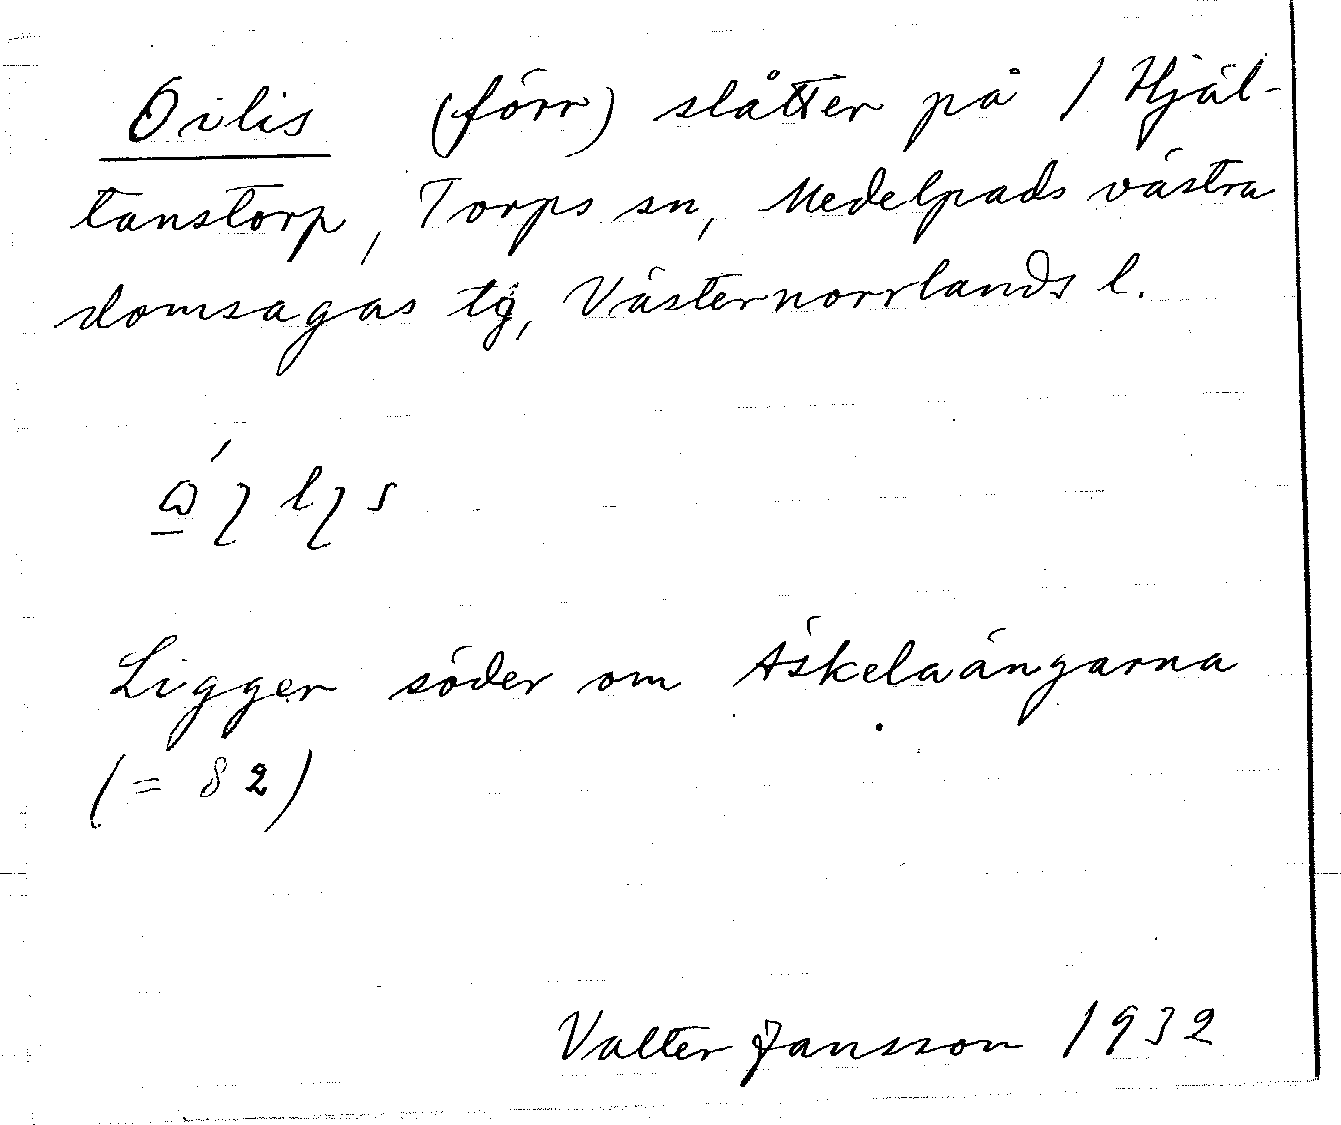 Öilis (förr) slåtter på 1 Hjäl-
tanstorp, Torps sn, Medelpads västra
domsagas tg, Västernorrlands l.
Ligger söder om Äskelaängarna
(= 82)
Valter Jansson 1932